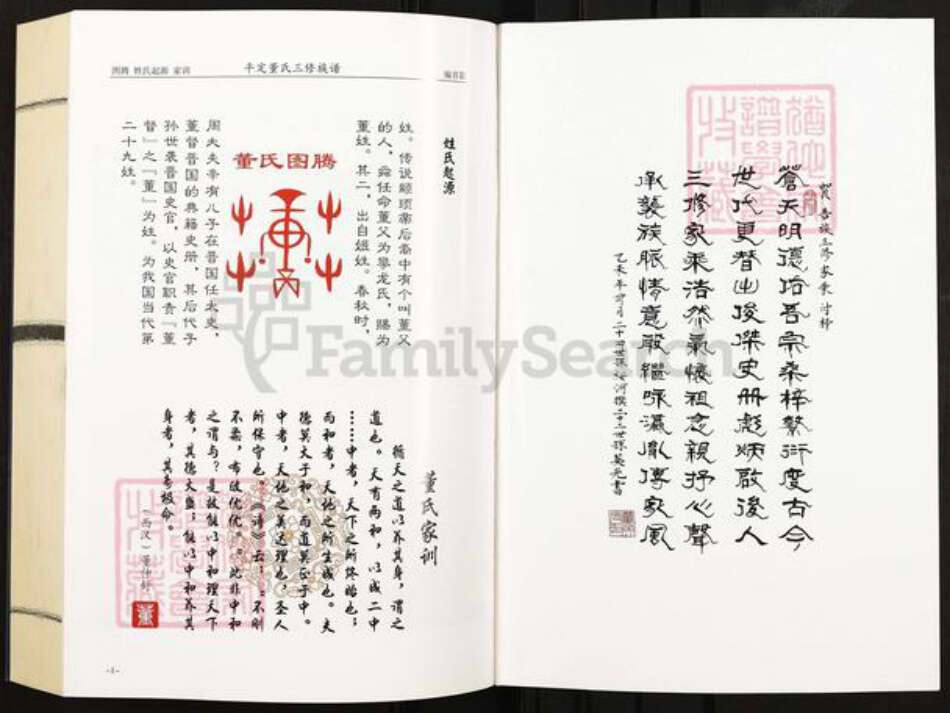 图腾 姓氏起源 家训
平定董氏三修族谱
编首
姓氏起源
姓。传说颛顼帝后裔中有个叫董父
的人,舜任命董父为豢龙氏,赐为
董姓。其二,出自姬姓。春秋时,
董氏图腾
周大夫辛有儿子在晋国任太史,
董督晋国的典籍史册,其后代子
孙世袭晋国史官,以史官职责『董
督』之『董』为姓。为我国当代第
二十九姓。
董氏家训
循天之道以养其身,谓之
道也。天有两和,以成二中
……中者,天下之所终始也;
而和者,天地之所生成也。夫
德莫大于和,而道莫正于中。
中者,天地之美达理也,圣人
所保守也。《诗》云:『不刚
不柔,布政优优。』此非中和
之谓与?是故能以中和理天下
者,其德大盛;能以中和养其
身者,其寿极命。
(西汉)董仲舒
董
-1-
FamilySearch
贺吾族三修家乘付梓
苍天明德佑吾宗桑梓繁衍度古今
世代更替出俊杰史册彪炳启后人
三修家乘浩然气怀祖念亲抒心声
承袭族脉情意殷继咏瀛胤传家风